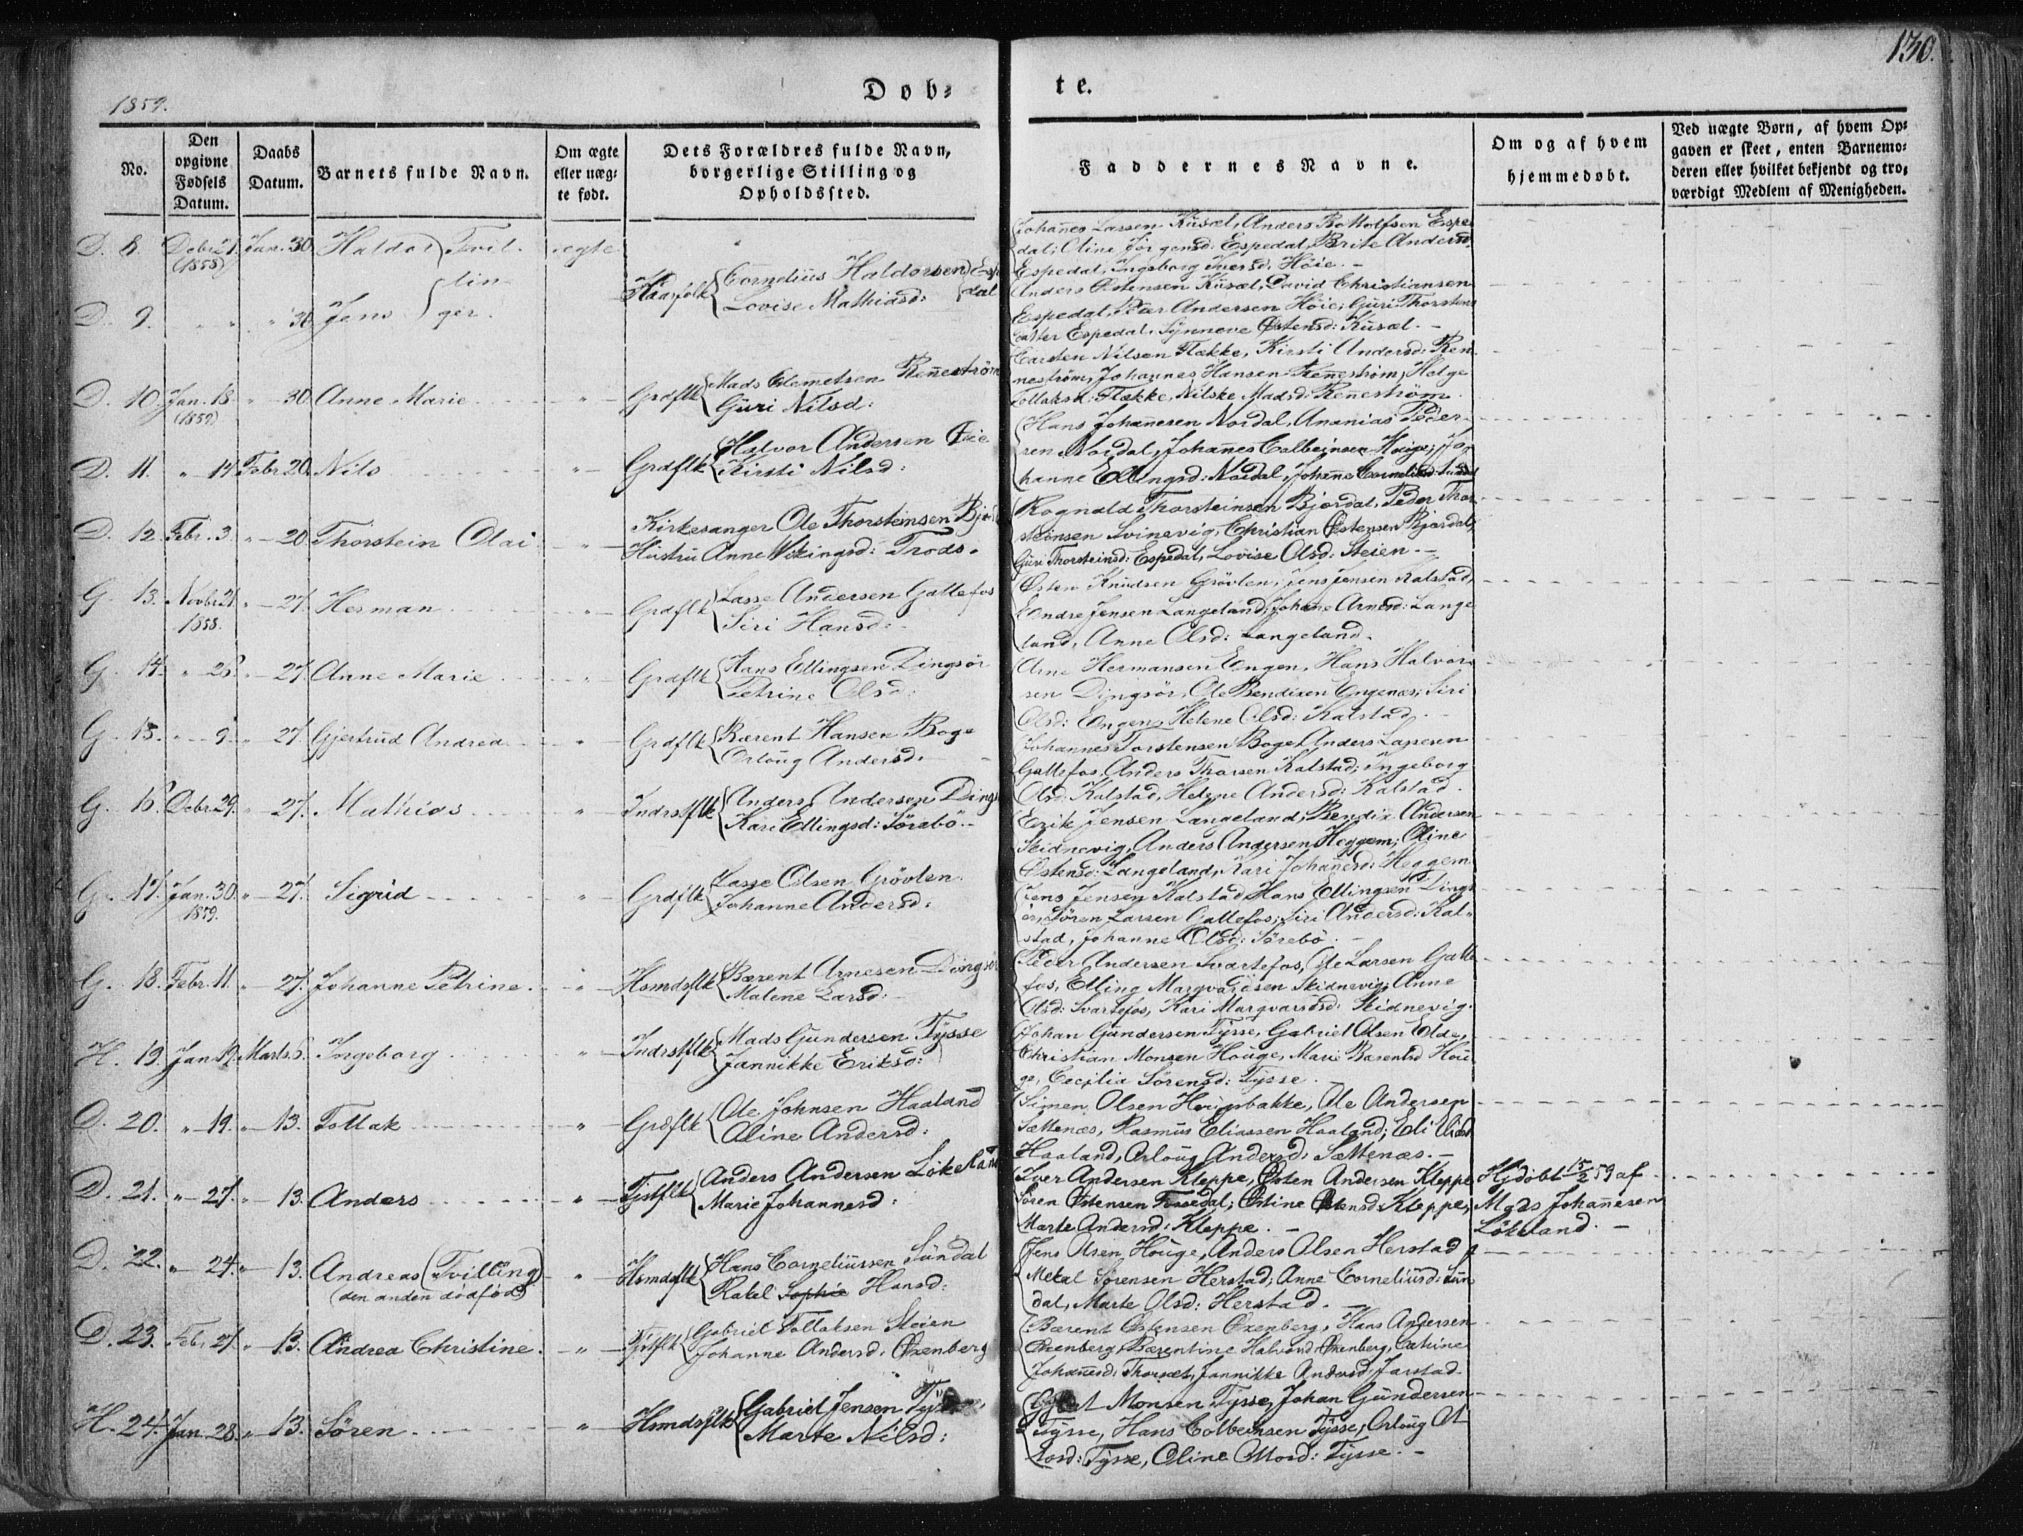 1859.
Døb-
te.
130.
No.
Den
opgivne
Fødsels
Datum.
Daabs
Datum.
Barnets fulde Navn.
Om ægte
eller uæg-
te født.
Dets Forældres fulde Navn,
borgerlige Stilling og
Opholdssted.
Faddernes Navne.
Om og af hvem
hjemmedøbt.
Ved uægte Børn, af hvem Op-
gaven er skeet, enten Barnemo-
deren eller hvilket bekjendt og tro-
værdigt Medlem af Menigheden.
D. 8. Debr 21 Jan. 30. Haldor Tvil- ægte
(1858)
lin-
Huusfolk Cornelius Haldorsen Esp
Lovise Mathiasd: dal
D. 9. " " " 30 Jens ger.
Johañes Lassen Kusæl, Anders Bottolfsen Espe
dal; Oline Jørgensd: Espedal, Brite Andersd
Espedal, Ingeborg Iversd: Høie. -
Anders Østensen Kusæl, David Christiansen
Espedal, Pær Andersen Høie; Guri Thorsteins
datter Espedal, Synneve Østensd: Kusæl. -
D. 10. Jan. 18 " 30. Anne Marie " Grdflk Mads Clemetsen Reñestrøm
(1859) Guri Nilsd:
Carsten Nilsen Flække, Kirsti Andersd: Ren
nestrøm, Johannes Hansen Reñestrøm, Helge
Tollaksd: Flække, Nilske Madsd: Reñestrøm.
D. 11. " 14. Febr 20. Nils " Grdflk Halvor Andersen Eeie
Kirsti Nilsd:
Hans Johañesen Nordal, Ananias Peder-
sen Nordal, Johañes Colbeinsen Houge; Jo-
hanne Ellingsd: Nordal, Johañe Corneliusd: Sundal
D. 12. Febr. 3. " 20. Thorstein Olai " Kirkesanger Ole Thorsteinsen Bjord
Hustru Anne Vikingsd: Trods.
Rognald Thorsteinsen Bjordal, Peder Thor
steinsen Svinevig, Christian Østensen Bjordal,
Guri Thorsteinsd: Espedal, Lovise Olsd: Steien. -
G. 13. Novbr 21. " 27. Herman " Grdflk Lasse Andersen Gallefos
1858. Siri Hansd:
Østen Knudsen Grøvlen, Jens Jensen Kalstad,
Endre Jensen Langeland; Johañe Arnesd: Lange
land, Anne Olsd: Langeland.
G. 14. " 26. " 27. Anne Marie " Grdflk Hans Ellingsen Dingsør
Petrine Olsd:
Arne Hermansen Engen, Hans Halvor-
sen Dingsør, Ole Bendixen Engenæs; Siri
Olsd: Engen, Helene Olsd: Kalstad. -
G. 15. " 9. " 27. Gjertrud Andrea " Grdflk Bærent Hansen Boge
Orloug Andersd:
Johannes Torstensen Boge, Anders Lassesen
Gallefos, Anders Thorsen Kalstad; Ingeborg
Olsd: Kalstad, Helene Andersd: Kalstad.
G. 16. Debr 29. " 27. Mathias " Indrstflk Anders Andersen Dings
Kari Ellingsd: Sørebø. -
Erik Jensen Langeland, Bendix Andersen
Skidnevig, Anders Andersen Heggem; Oline
Østensd: Langeland, Kari Johañesd: Heggem
G. 17. Jan. 30. " 27. Sigrid " Grdflk Lasse Olsen Grøvlen.
1859. Johanne Andersd:
Jens Jensen Kalstad, Hans Ellingsen Dings
ør, Søren Larsen Gallefos; Siri Andersd: Kal-
stad, Johanne Olsd: Sørebø. -
G. 18. Febr. 11. " 27. Johanne Petrine. " Hsmdsflk Bærent Arnesen Dingsør
Malene Larsd: -
Peder Andersen Svartefos, Ole Larsen Galle
fos, Elling Marqvardsen Skidnevig; Anne
Olsd: Svartefos, Kari Marqvardsd: Skidnevig.
H. 19. Jan 19. Marts 6. Ingeborg " Indrstflk Mads Gundersen Tysse
Jannikke Eriksd:
Johan Gundersen Tysse, Gabriel Olsen Elde,
Christian Monsen Houge, Marie Barentsd Hou
ge, Cecilia Sørensd: Tysse. -
D. 20. " 19. " 13. Tollak " Grdflk Ole Johnsen Haaland
Oline Andersd:
Simen Olsen Hougsbakke, Ole Andersen
Sættenæs, Rasmus Eliassen Haaland; Eli
Haaland, Orloug Andersd: Sættenæs. -
D. 21. " 27. " 13. Anders " Tjstflk Anders Andersen Løkeland
Marie Johannesd:
Iver Andersen Kleppe, Østen Andersen Kleppe
Søren Østensen Fossedal; Østine Østensd: Kleppe,
Marte Andersd: Kleppe. -
Hjdøbt 15/2 59 af
Mads Johañesen
Løkeland. -
D. 22. " 24. " 13. Andreas (Tvilling) " Hsmdsflk Hans Corneliussen Sundal
(den anden dødfød) Rakel Sophie Hansd:
Jens Olsen Houge, Anders Olsen Herstad,
Mekal Sørensen Herstad; Anne Corneliusd: Sun
dal, Marte Olsd: Herstad. -
D. 23. Feb. 27. " 13. Andrea Christine. " Tjstflk Gabriel Tollaksen Steien
Johanne Andersd. Øxenberg
Bærent Østensen Øxenberg, Hans Andersen
Øxenberg, Bærentine Halvorsd Øxenberg, Cathrine
Johañesd: Thorsæt, Jannikke Andersd: Jarstad
H. 24. Jan. 28. " 13. Søren " Hsmdsflk Gabriel Jensen Tysse,
Marte Nilsd:
Monsen Tysse, Johan Gundersen
Tysse, Hans Colbeinsen Tysse, Orloug
Tysse, Oline Tysse. -